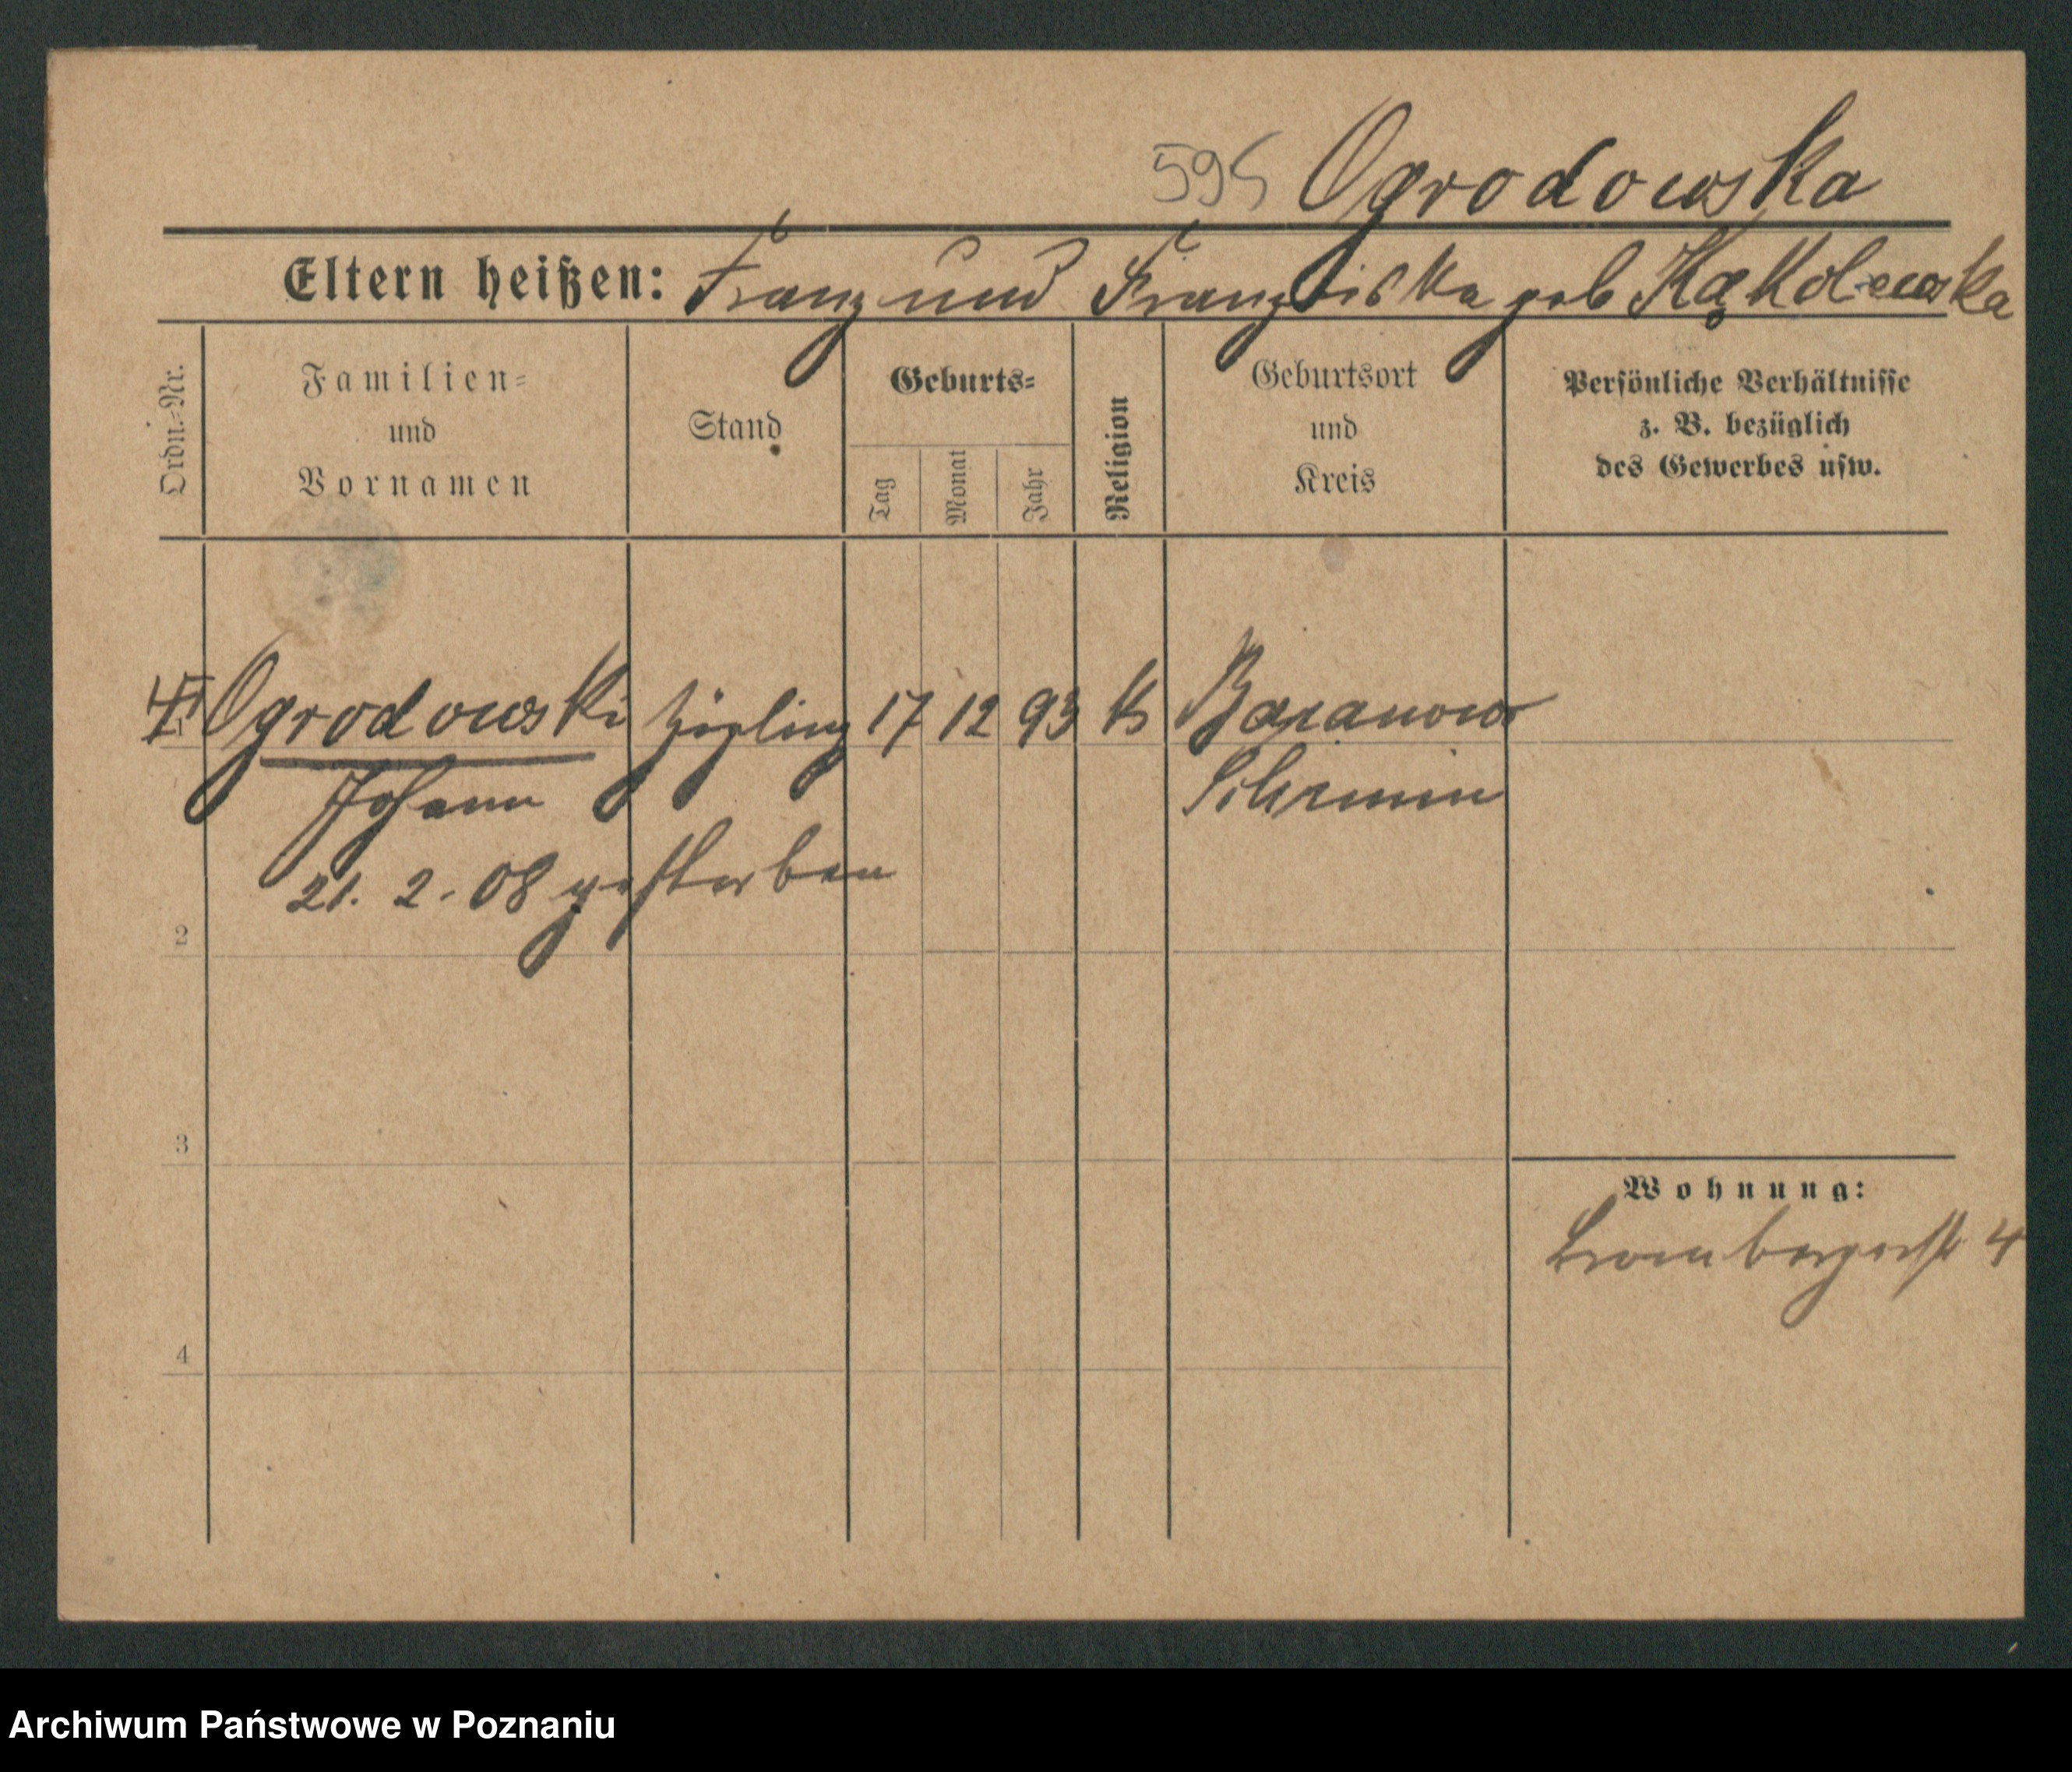 595 Ogrodowska
Eltern heißen: Franz und Franziska geb Kąkolewska
Ordn.-Nr.
Familien-
und
Vornamen
Stand
Geburts-
Tag
Monat
Jahr
Religion
Geburtsort
und
Kreis
Persönliche Verhältnisse
z. B. bezüglich
des Gewerbes usw.
Ogrodowski Zögling 17 12 93 k Baranowo
Johann Schrimm
21. 2. 08 gestorben
2
3
Wohnung:
Brombergerstr 4
4
Archiwum Państwowe w Poznaniu